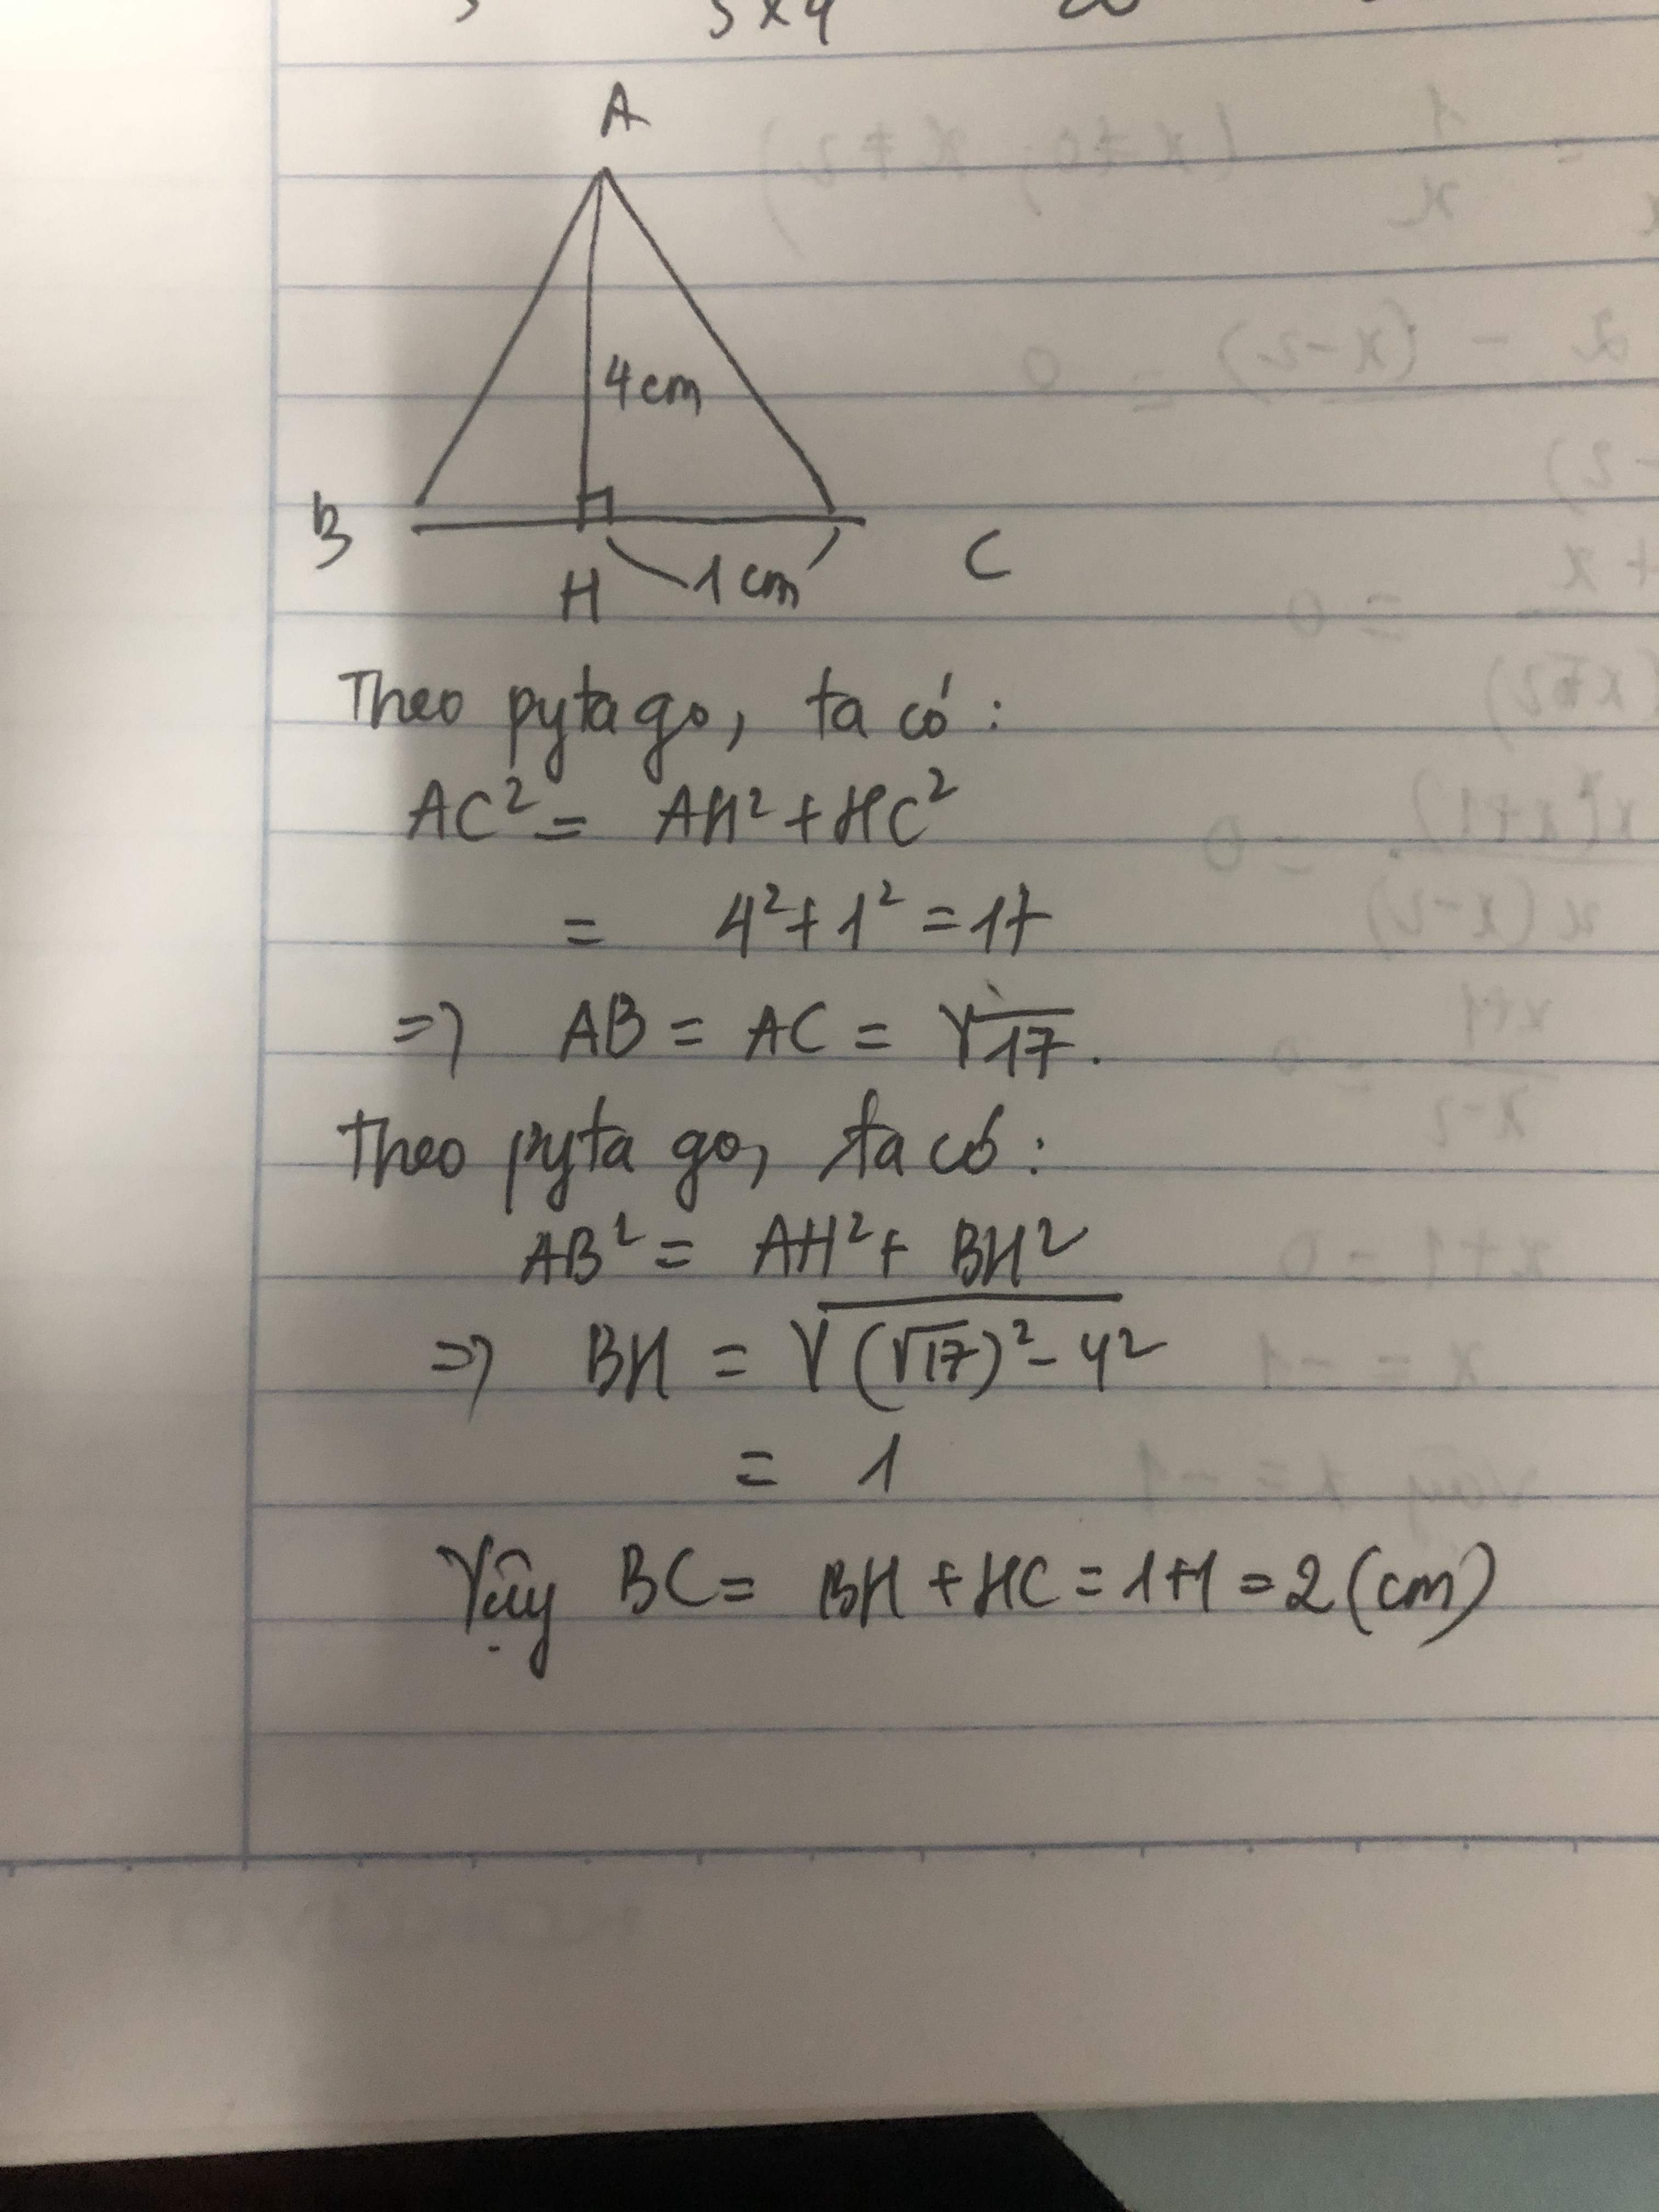 5x4
A
4cm
B
H
1cm
C
Theo pytago, ta có:
AC² = AH² + HC²
= 4² + 1² = 17
=> AB = AC = √17.
Theo pytago, ta có:
AB² = AH² + BH²
=> BH = √(√17)² - 4²
= 1
Vậy BC = BH + HC = 1+1 = 2 (cm)